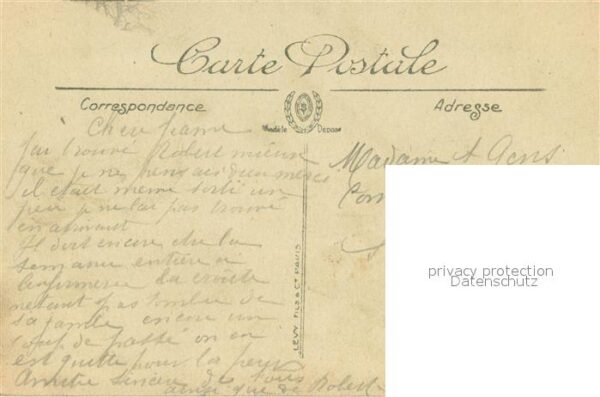 Carte Postale
Correspondance
Adresse
Modèle Déposé
LEVY, FILS & Cie PARIS
Cher Jeanne
J'ai trouvé Robert mieux
que je ne pensais dieu merci
il était meme sorti un
peu je ne l'ai pas trouvé
en arrivant
Il doit encore etre la
semaine entière a
l'infirmerie la croûte
netant pas tombée de
sa jambe encore un
coup de passé on en
est quitte pour la peur
Amitié sincère de tous
ainsi que de Robert
Madame A
privacy protection
Datenschutz